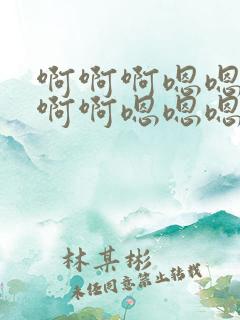 啊啊啊嗯嗯
啊啊嗯嗯嗯
林某彬
未经同意禁止转载